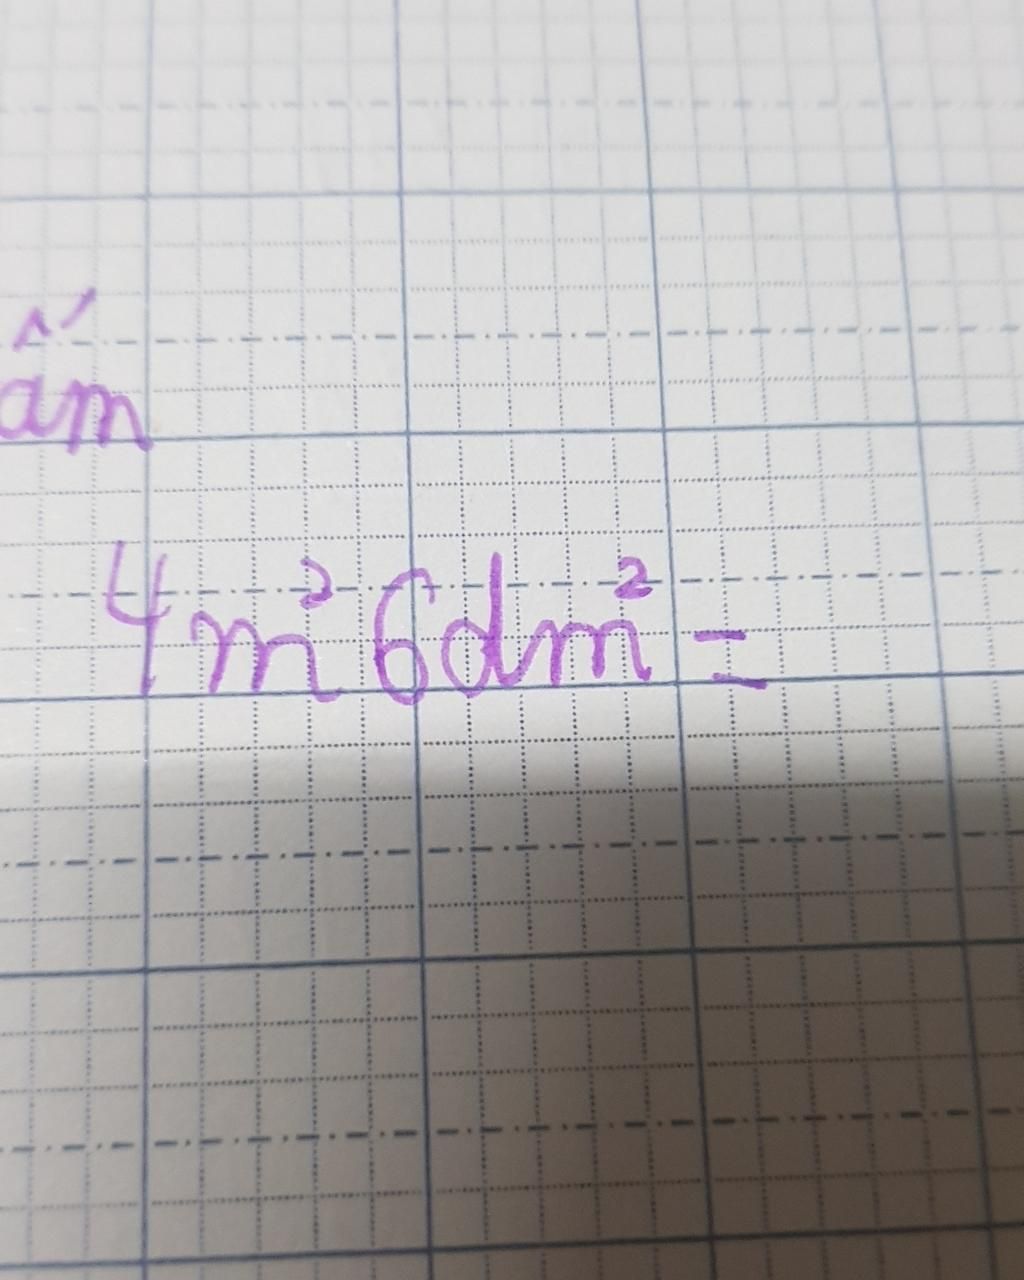 ấm
4m²6dm² =